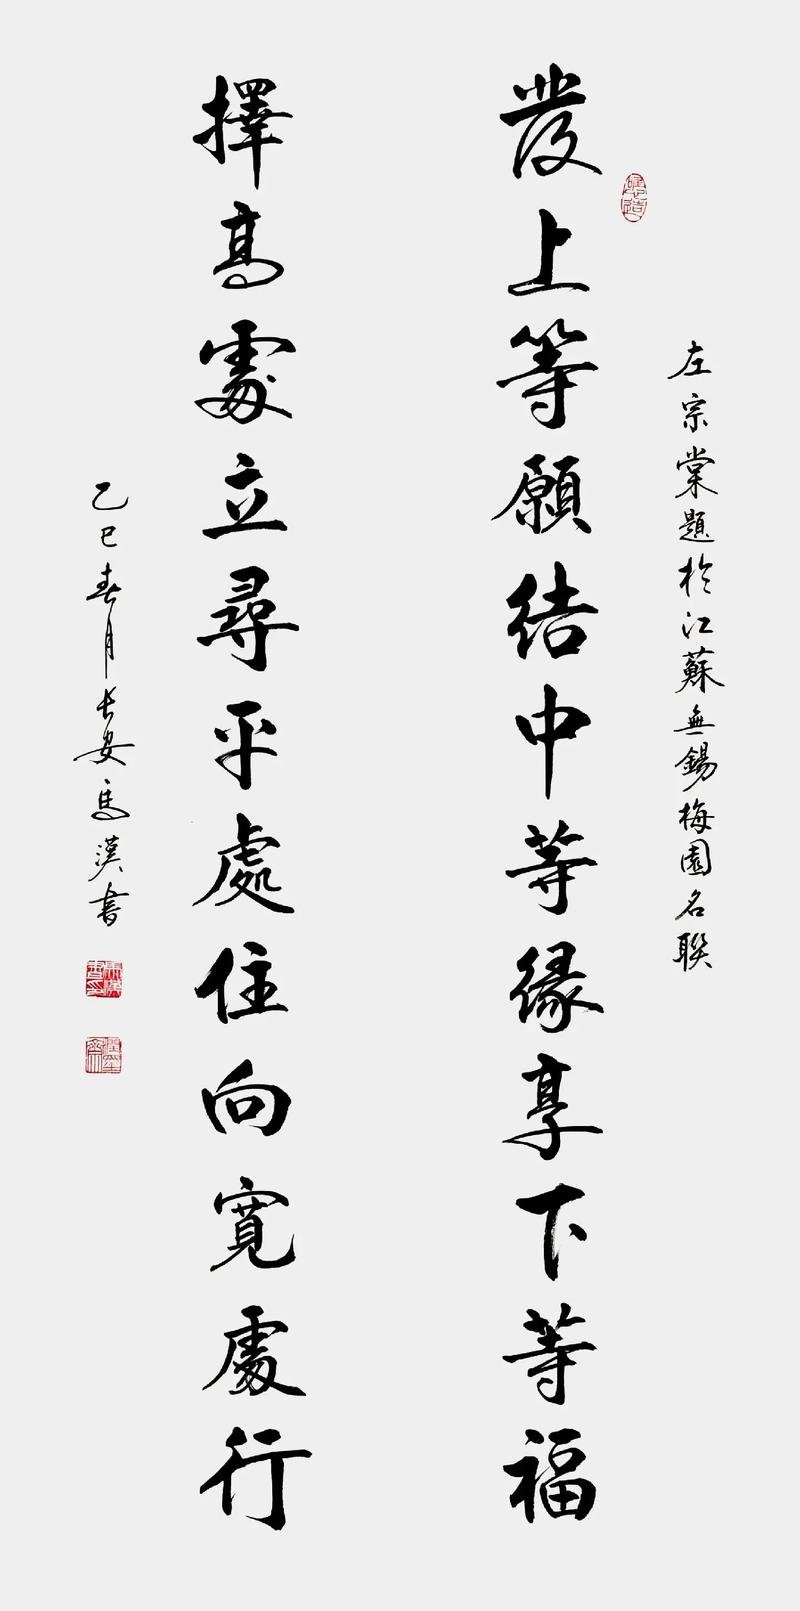 左宗棠題於江蘇無錫梅園名聯
發上等願結中等緣享下等福
擇高處立尋平處住向寬處行
乙巳春月長安馬漢書